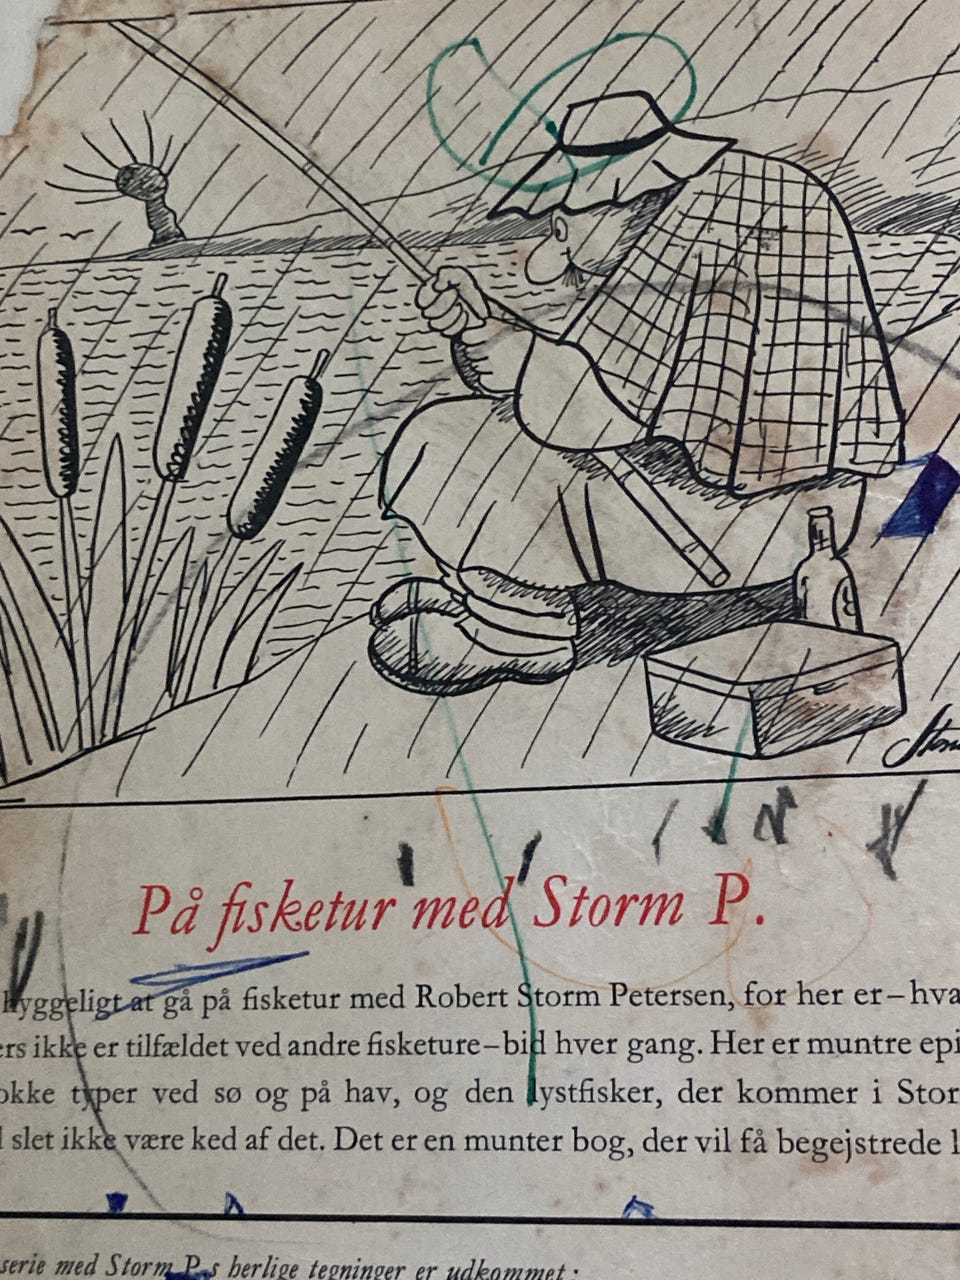 På fisketur med Storm P.
hyggeligt at gå på fisketur med Robert Storm Petersen, for her er – hva
ers ikke er tilfældet ved andre fisketure – bid hver gang. Her er muntre epi
okke typer ved sø og på hav, og den lystfisker, der kommer i Stor
slet ikke være ked af det. Det er en munter bog, der vil få begejstrede l
serie med Storm P.s herlige tegninger er udkommet: